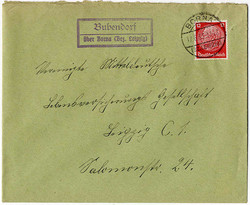 Bubendorf
über Borna (Bez. Leipzig)
BORNA
12
Deutsches Reich
Vereinigte Mitteldeutsche
Lebensversicherungs Gesellschaft
Leipzig C. 1.
Salomonstr. 24.